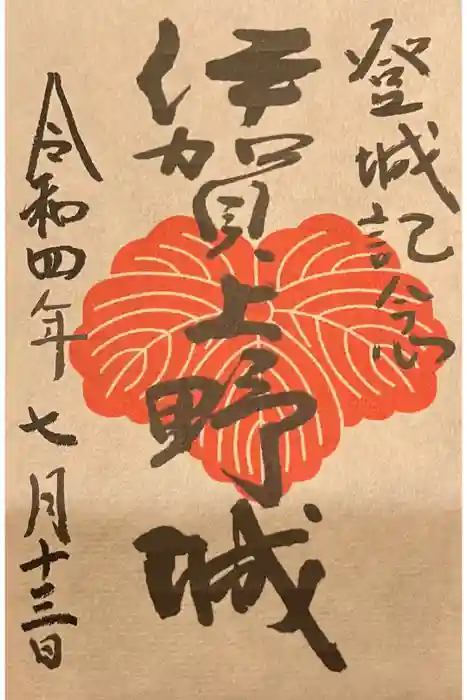 登城記念
伊賀上野城
令和四年七月十三日